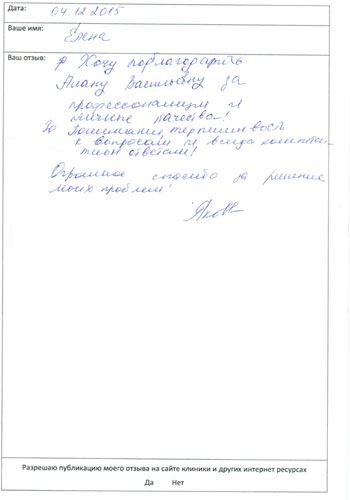 Дата:
04.12.2015
Ваше имя:
Елена
Ваш отзыв:
Я Хочу поблагодарить
Алану Васильевну за
профессионализм и
личные качества!
За Понимание, терпимивость
к вопросам и всегда компетен
тион ответами!
Огромное спасибо за решение
моих проблем!
Разрешаю публикацию моего отзыва на сайте клиники и других интернет ресурсах
Да Нет